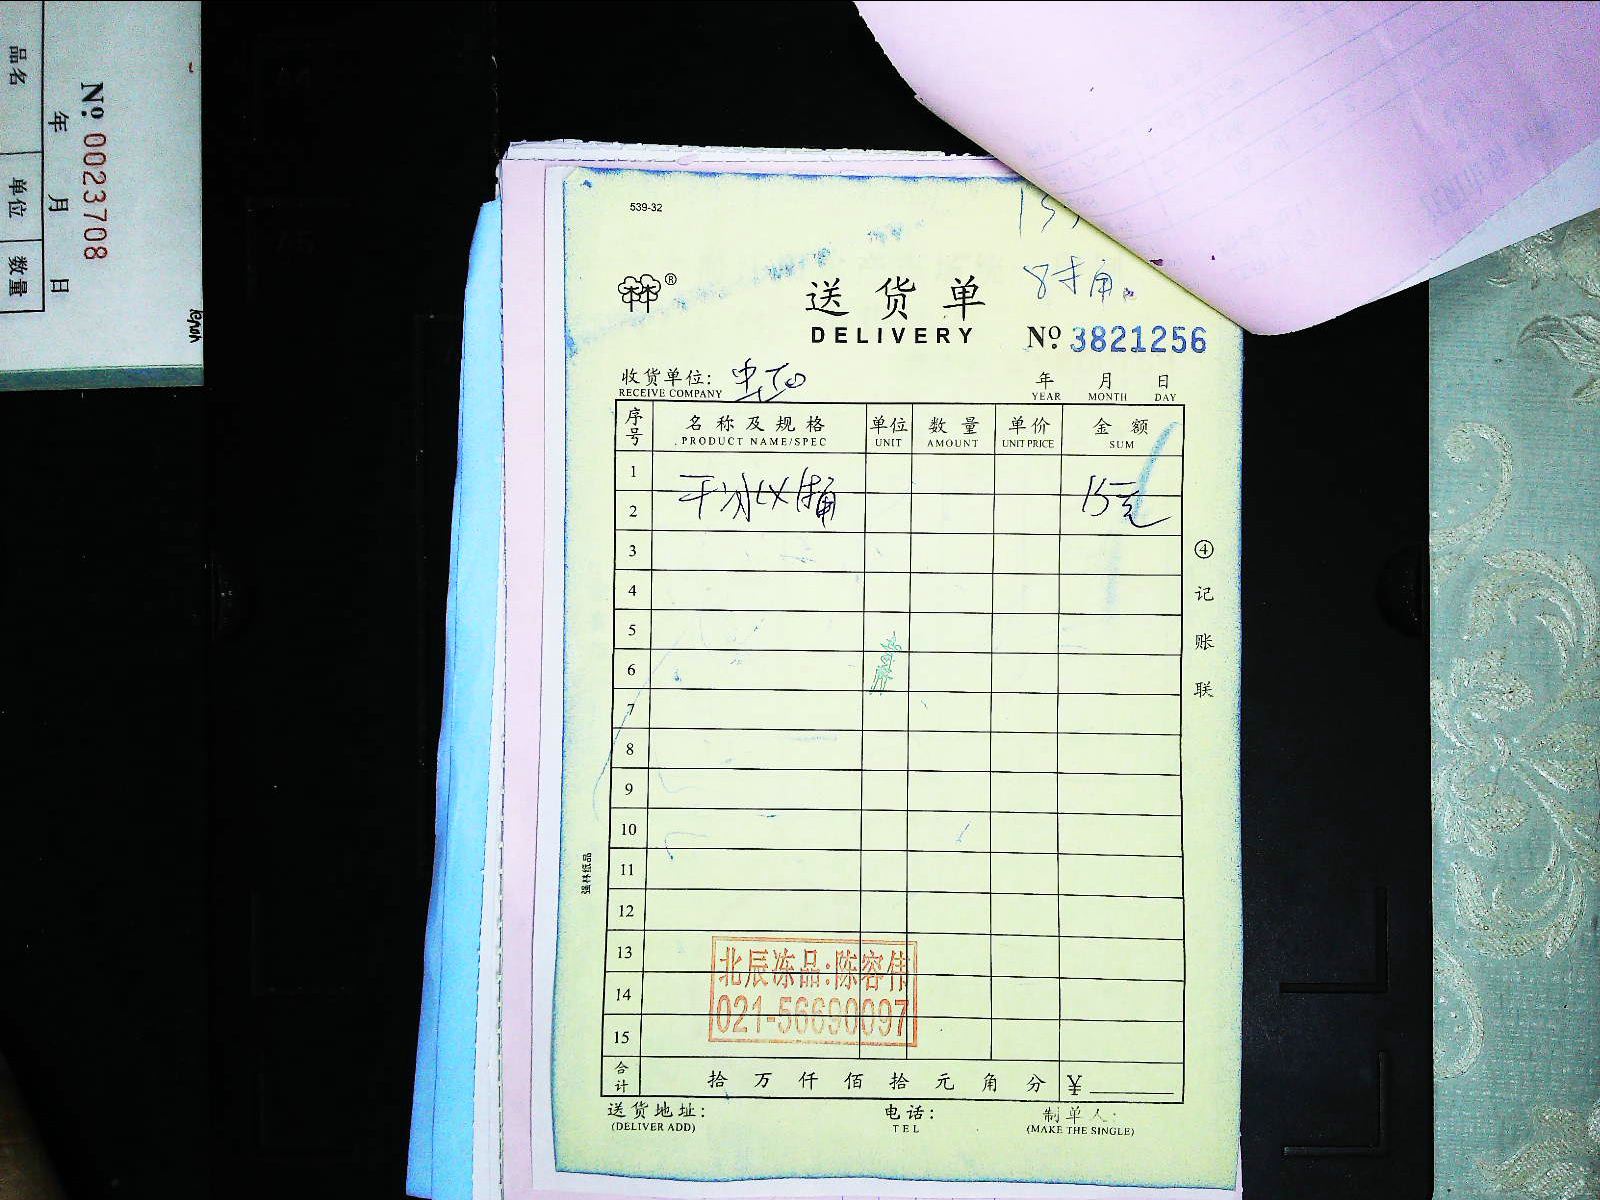 品名 单位 数量
年 月 日
№ 0023708
539-32
送货单
DELIVERY
№ 3821256
收货单位:
RECEIVE COMPANY
年 月 日
YEAR MONTH DAY
序号 名称及规格 单位 数量 单价 金额
PRODUCT NAME/SPEC UNIT AMOUNT UNIT PRICE SUM
1
2
15元
3
4
5
6
7
8
9
10
11
12
13
14
15
④记账联
强林纸品
北辰冻品:陈容伟
021-56690097
合计 拾 万 仟 佰 拾 元 角 分 ¥
送货地址: 电话: 制单人:
(DELIVER ADD) TEL (MAKE THE SINGLE)